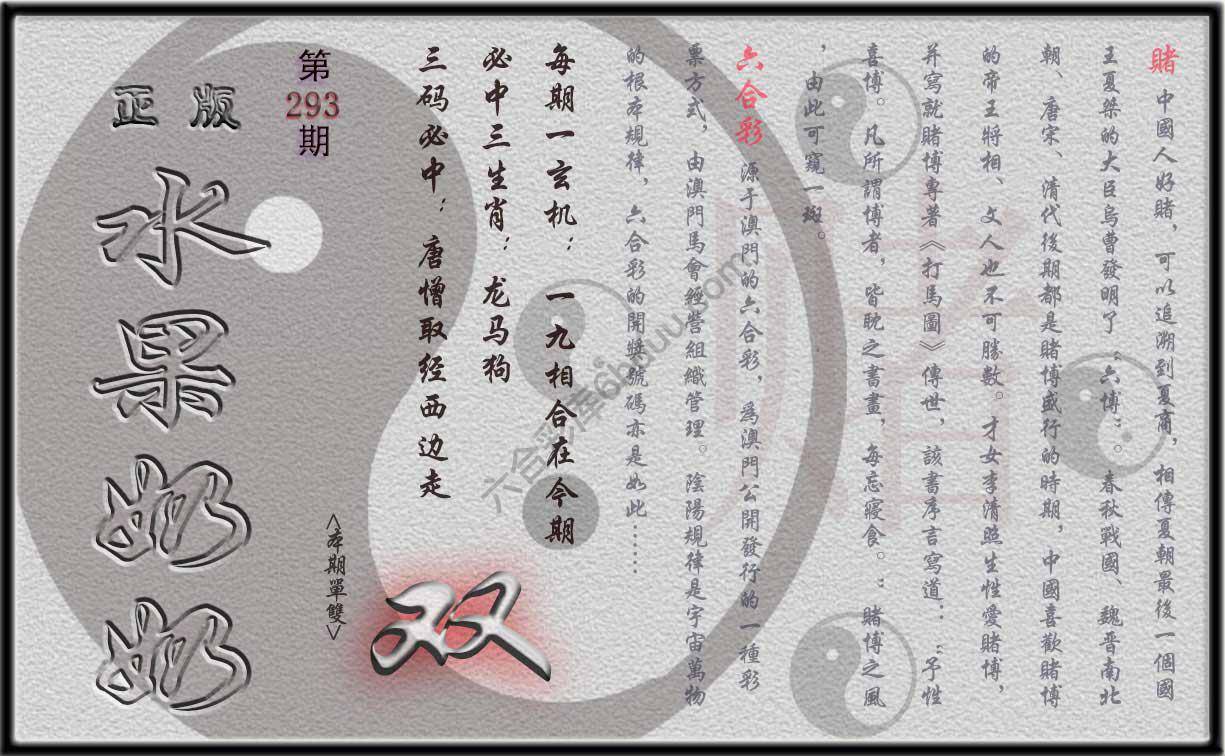 賭 中國人好賭，可以追溯到夏商，相傳夏朝最後一個國
王夏桀的大臣烏曹發明了“六博”。春秋戰國、魏晋南北
朝、唐宋、清代後期都是賭博盛行的時期，中國喜歡賭博
的帝王將相、文人也不可勝數。才女李清照生性愛賭博，
并寫就賭博專著《打馬圖》傳世，該書序言寫道：“予性
喜博。凡所謂博者，皆耽之書畫，每忘寢食。”賭博之風
，由此可窺一斑。
六合彩 源于澳門的六合彩，爲澳門公開發行的一種彩
票方式，由澳門馬會經營組織管理。陰陽規律是宇宙萬物
的根本規律，六合彩的開獎號碼亦是如此……
每期一玄机：一九相合在今期
必中三生肖：龙马狗
三码必中：唐憎取经西边走
第293期
<本期單雙>
双
正版
水果奶奶
賭
六合彩库6hduu.com